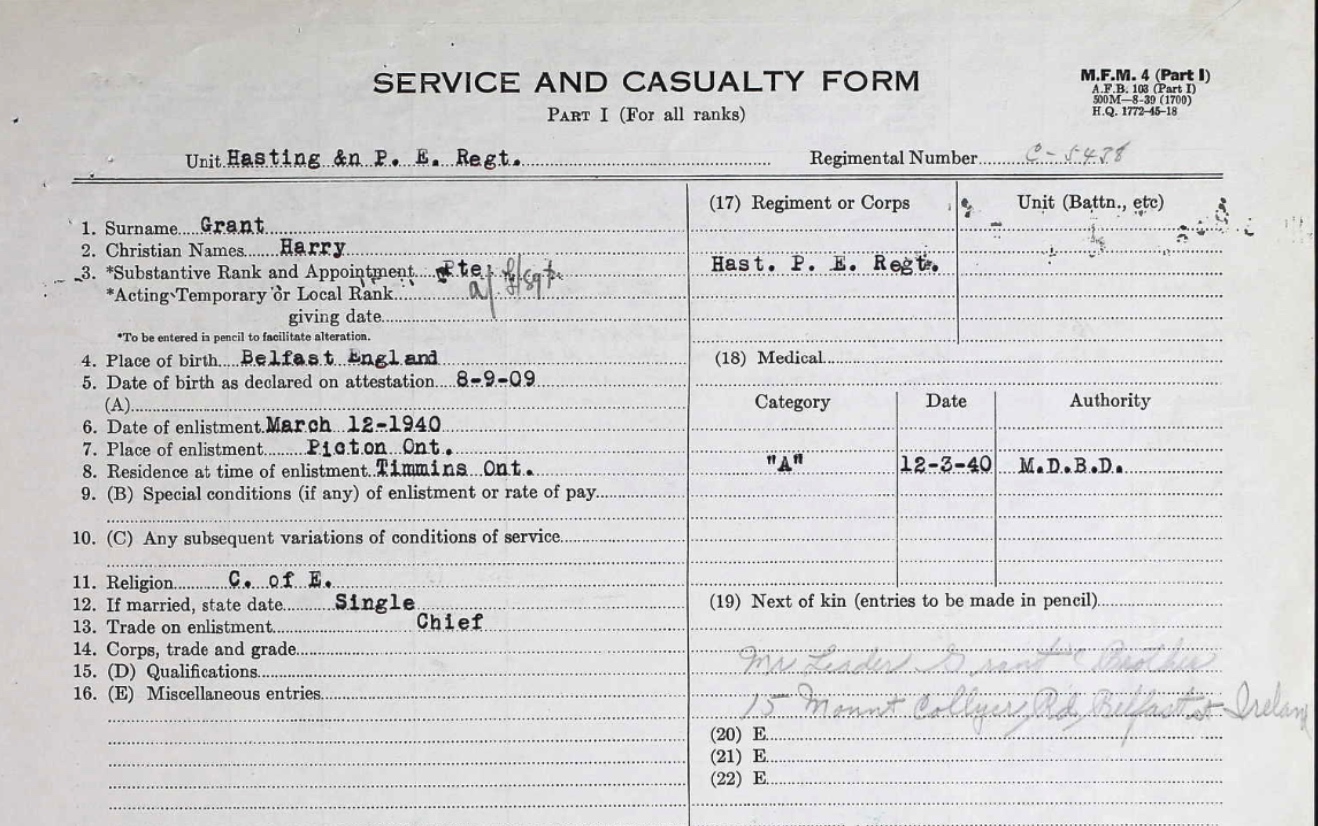 SERVICE AND CASUALTY FORM
PART I (For all ranks)
M.F.M. 4 (Part I)
A.F.B. 103 (Part I)
500M—8-39 (1700)
H.Q. 1772-45-18
Unit Hasting &n P. E. Regt.
Regimental Number C-5438
1. Surname Grant
2. Christian Names Harry
3. *Substantive Rank and Appointment Pte
*Acting Temporary or Local Rank a/ L/Sgt
giving date
*To be entered in pencil to facilitate alteration.
4. Place of birth Belfast England
5. Date of birth as declared on attestation 8-9-09
(A)
6. Date of enlistment March 12-1940
7. Place of enlistment Picton Ont.
8. Residence at time of enlistment Timmins Ont.
9. (B) Special conditions (if any) of enlistment or rate of pay
10. (C) Any subsequent variations of conditions of service
11. Religion C. of E.
12. If married, state date Single
13. Trade on enlistment Chief
14. Corps, trade and grade
15. (D) Qualifications
16. (E) Miscellaneous entries
(17) Regiment or Corps
Unit (Battn., etc)
Hast. P. E. Regt.
(18) Medical
Category Date Authority
"A" 12-3-40 M.D.B.D.
(19) Next of kin (entries to be made in pencil)
Mr Grant Brother
15 Mount Collyer Rd, Belfast Ireland
(20) E
(21) E
(22) E